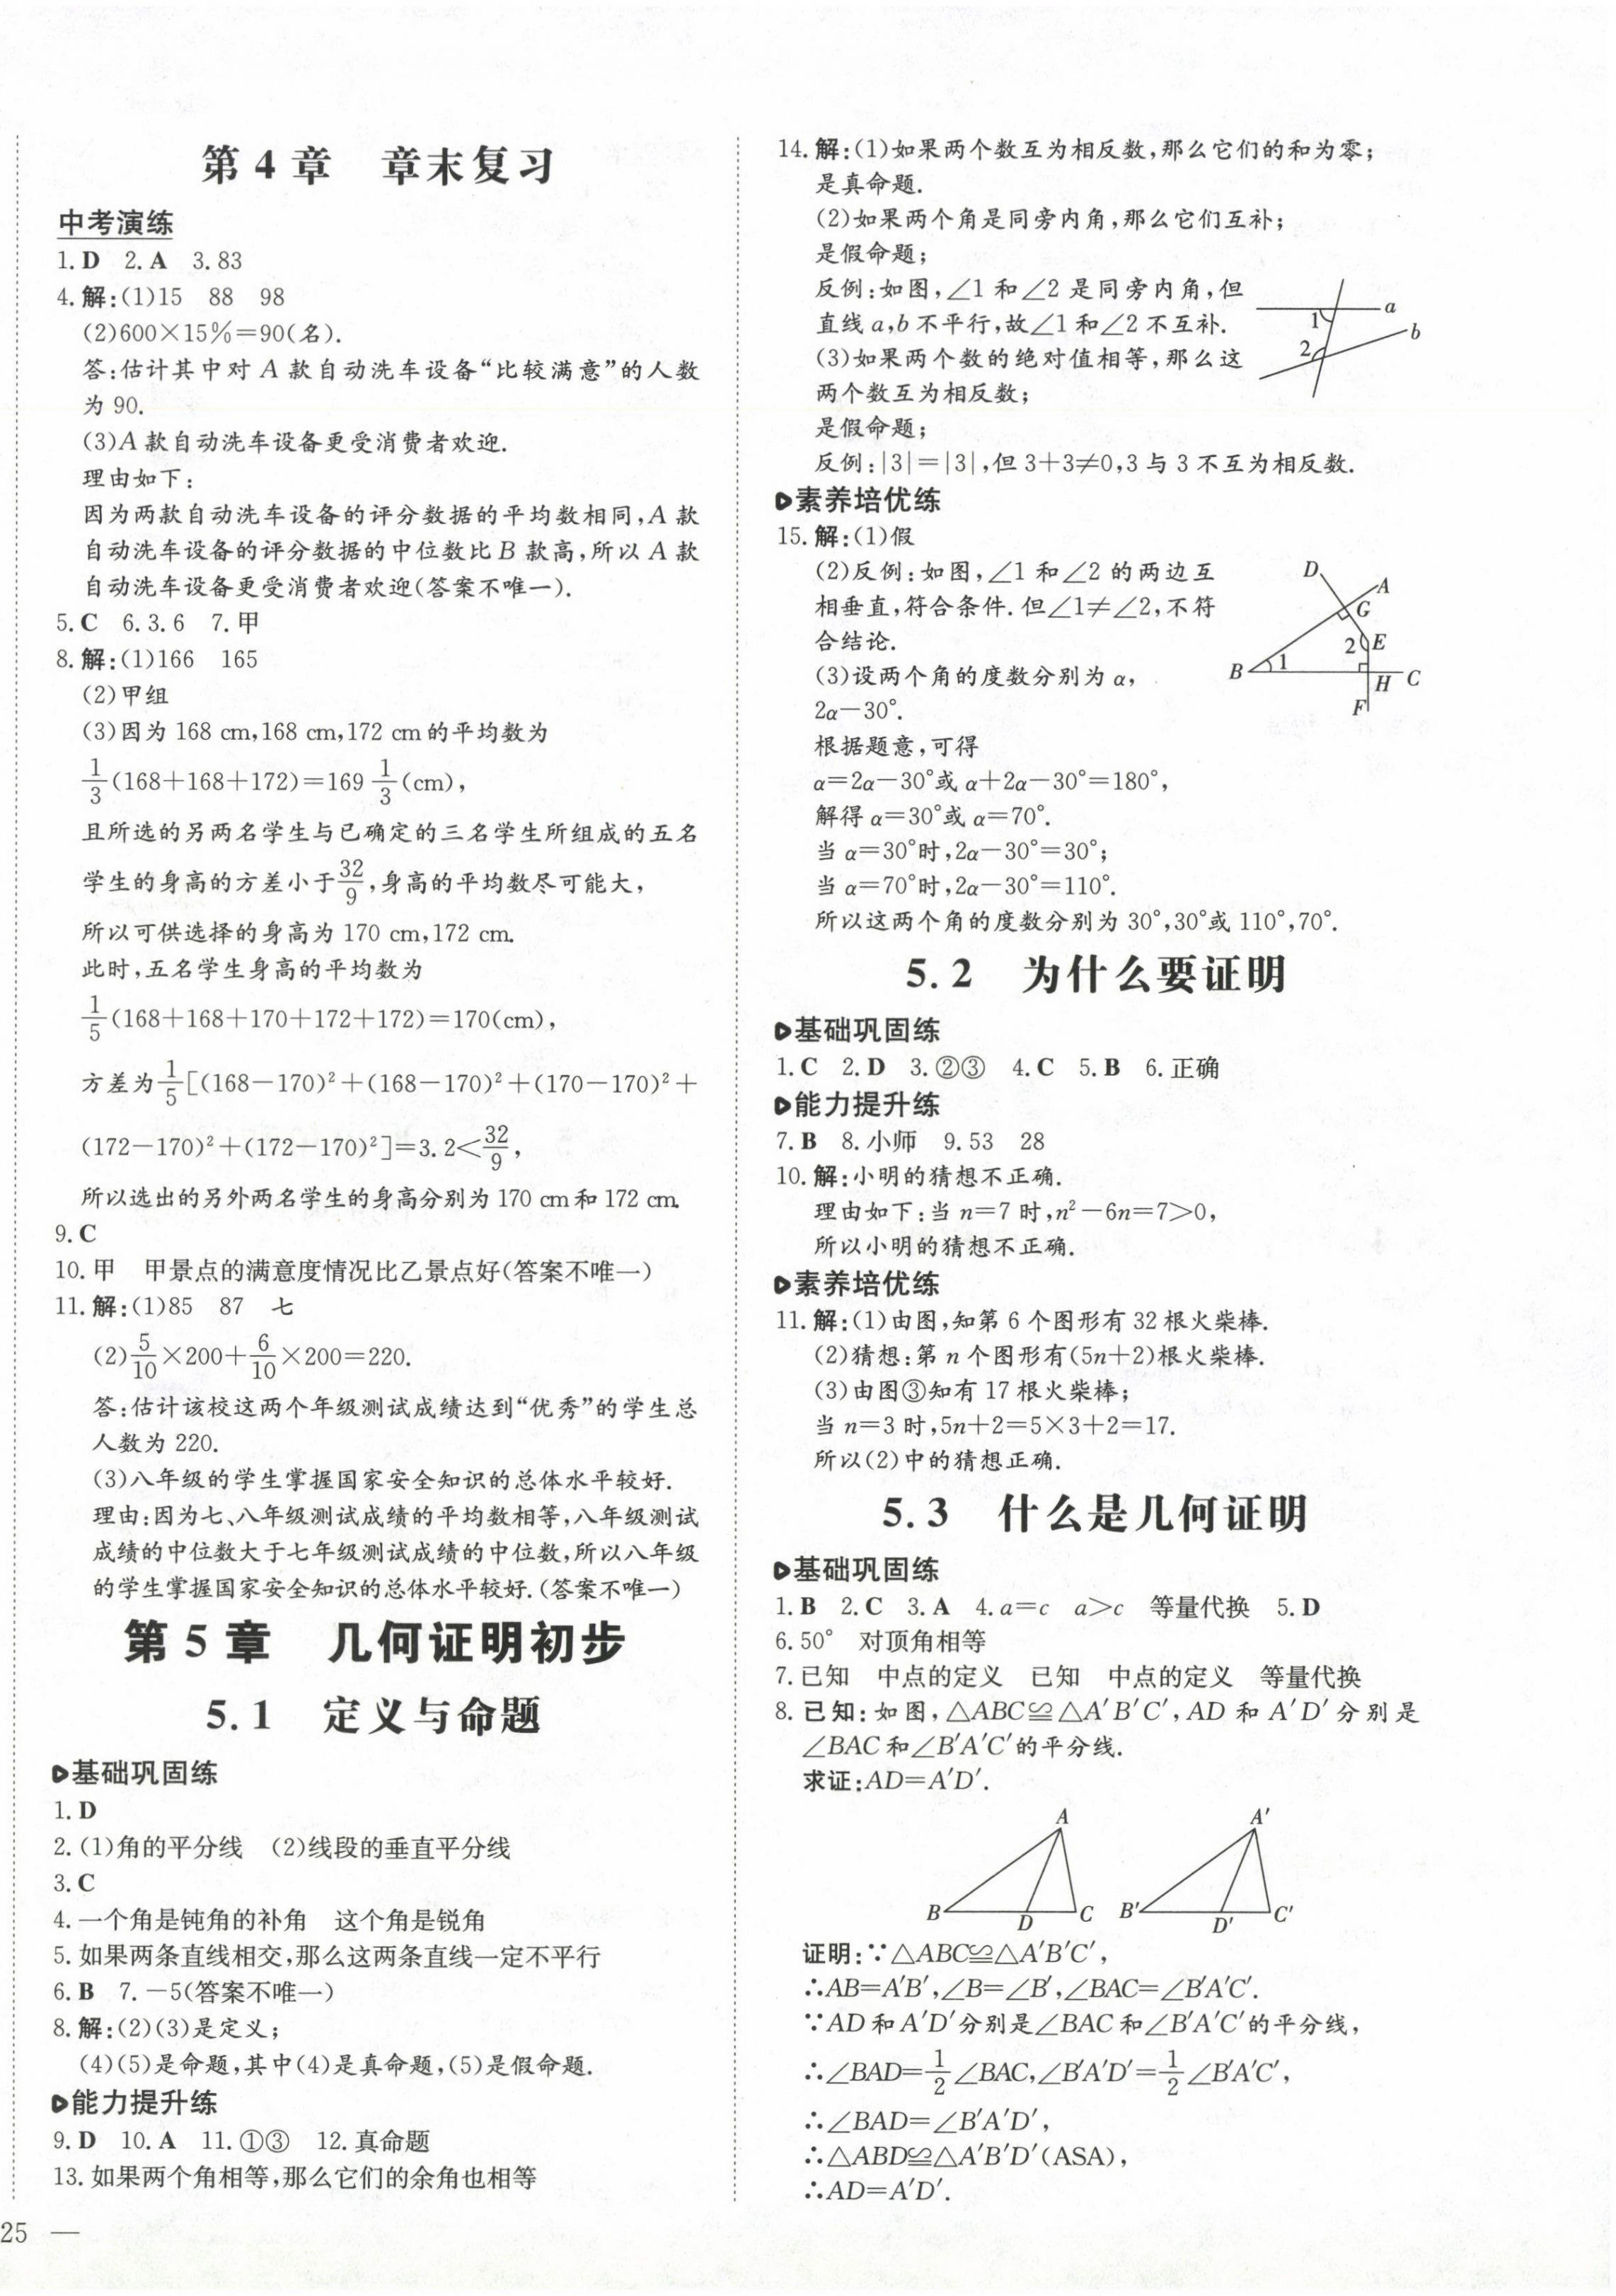 第4章　章末复习
中考演练
1. D　2. A　3. 83
4. 解:(1)15　88　98
(2)600×15%=90(名).
答:估计其中对 A 款自动洗车设备“比较满意”的人数
为 90.
(3)A 款自动洗车设备更受消费者欢迎.
理由如下:
因为两款自动洗车设备的评分数据的平均数相同,A 款
自动洗车设备的评分数据的中位数比 B 款高,所以 A 款
自动洗车设备更受消费者欢迎(答案不唯一).
5. C　6. 3.6　7. 甲
8. 解:(1)166　165
(2)甲组
(3)因为 168 cm,168 cm,172 cm 的平均数为
1/3(168+168+172)=169 1/3(cm),
且所选的另两名学生与已确定的三名学生所组成的五名
学生的身高的方差小于32/9,身高的平均数尽可能大,
所以可供选择的身高为 170 cm,172 cm.
此时,五名学生身高的平均数为
1/5(168+168+170+172+172)=170(cm),
方差为1/5[(168-170)²+(168-170)²+(170-170)²+
(172-170)²+(172-170)²]=3.2<32/9,
所以选出的另外两名学生的身高分别为 170 cm 和 172 cm.
9. C
10. 甲　甲景点的满意度情况比乙景点好(答案不唯一)
11. 解:(1)85　87　七
(2)5/10×200+6/10×200=220.
答:估计该校这两个年级测试成绩达到“优秀”的学生总
人数为 220.
(3)八年级的学生掌握国家安全知识的总体水平较好.
理由:因为七、八年级测试成绩的平均数相等,八年级测试
成绩的中位数大于七年级测试成绩的中位数,所以八年级
的学生掌握国家安全知识的总体水平较好.(答案不唯一)
第5章　几何证明初步
5.1　定义与命题
基础巩固练
1. D
2. (1)角的平分线　(2)线段的垂直平分线
3. C
4. 一个角是钝角的补角　这个角是锐角
5. 如果两条直线相交,那么这两条直线一定不平行
6. B　7. -5(答案不唯一)
8. 解:(2)(3)是定义;
(4)(5)是命题,其中(4)是真命题,(5)是假命题.
能力提升练
9. D　10. A　11. ①③　12. 真命题
13. 如果两个角相等,那么它们的余角也相等
25 —
14. 解:(1)如果两个数互为相反数,那么它们的和为零;
是真命题.
(2)如果两个角是同旁内角,那么它们互补;
是假命题;
反例:如图,∠1 和∠2 是同旁内角,但
直线 a,b 不平行,故∠1 和∠2 不互补.
(3)如果两个数的绝对值相等,那么这
两个数互为相反数;
是假命题;
反例:|3|=|3|,但 3+3≠0,3 与 3 不互为相反数.
a
1
b
2
素养培优练
15. 解:(1)假
(2)反例:如图,∠1 和∠2 的两边互
相垂直,符合条件.但∠1≠∠2,不符
合结论.
(3)设两个角的度数分别为 α,
2α-30°.
根据题意,可得
α=2α-30°或 α+2α-30°=180°,
解得 α=30°或 α=70°.
当 α=30°时,2α-30°=30°;
当 α=70°时,2α-30°=110°.
所以这两个角的度数分别为 30°,30°或 110°,70°.
D
A
G
2
E
B
1
H
C
F
5.2　为什么要证明
基础巩固练
1. C　2. D　3. ②③　4. C　5. B　6. 正确
能力提升练
7. B　8. 小师　9. 53　28
10. 解:小明的猜想不正确.
理由如下:当 n=7 时,n²-6n=7>0,
所以小明的猜想不正确.
素养培优练
11. 解:(1)由图,知第 6 个图形有 32 根火柴棒.
(2)猜想:第 n 个图形有(5n+2)根火柴棒.
(3)由图③知有 17 根火柴棒;
当 n=3 时,5n+2=5×3+2=17.
所以(2)中的猜想正确.
5.3　什么是几何证明
基础巩固练
1. B　2. C　3. A　4. a=c　a>c　等量代换　5. D
6. 50°　对顶角相等
7. 已知　中点的定义　已知　中点的定义　等量代换
8. 已知:如图,△ABC≌△A′B′C′,AD 和 A′D′分别是
∠BAC 和∠B′A′C′的平分线.
求证:AD=A′D′.
A
A′
B
D
C
B′
D′
C′
证明:∵△ABC≌△A′B′C′,
∴AB=A′B′,∠B=∠B′,∠BAC=∠B′A′C′.
∵AD 和 A′D′分别是∠BAC 和∠B′A′C′的平分线,
∴∠BAD=1/2∠BAC,∠B′A′D′=1/2∠B′A′C′,
∴∠BAD=∠B′A′D′,
∴△ABD≌△A′B′D′(ASA),
∴AD=A′D′.